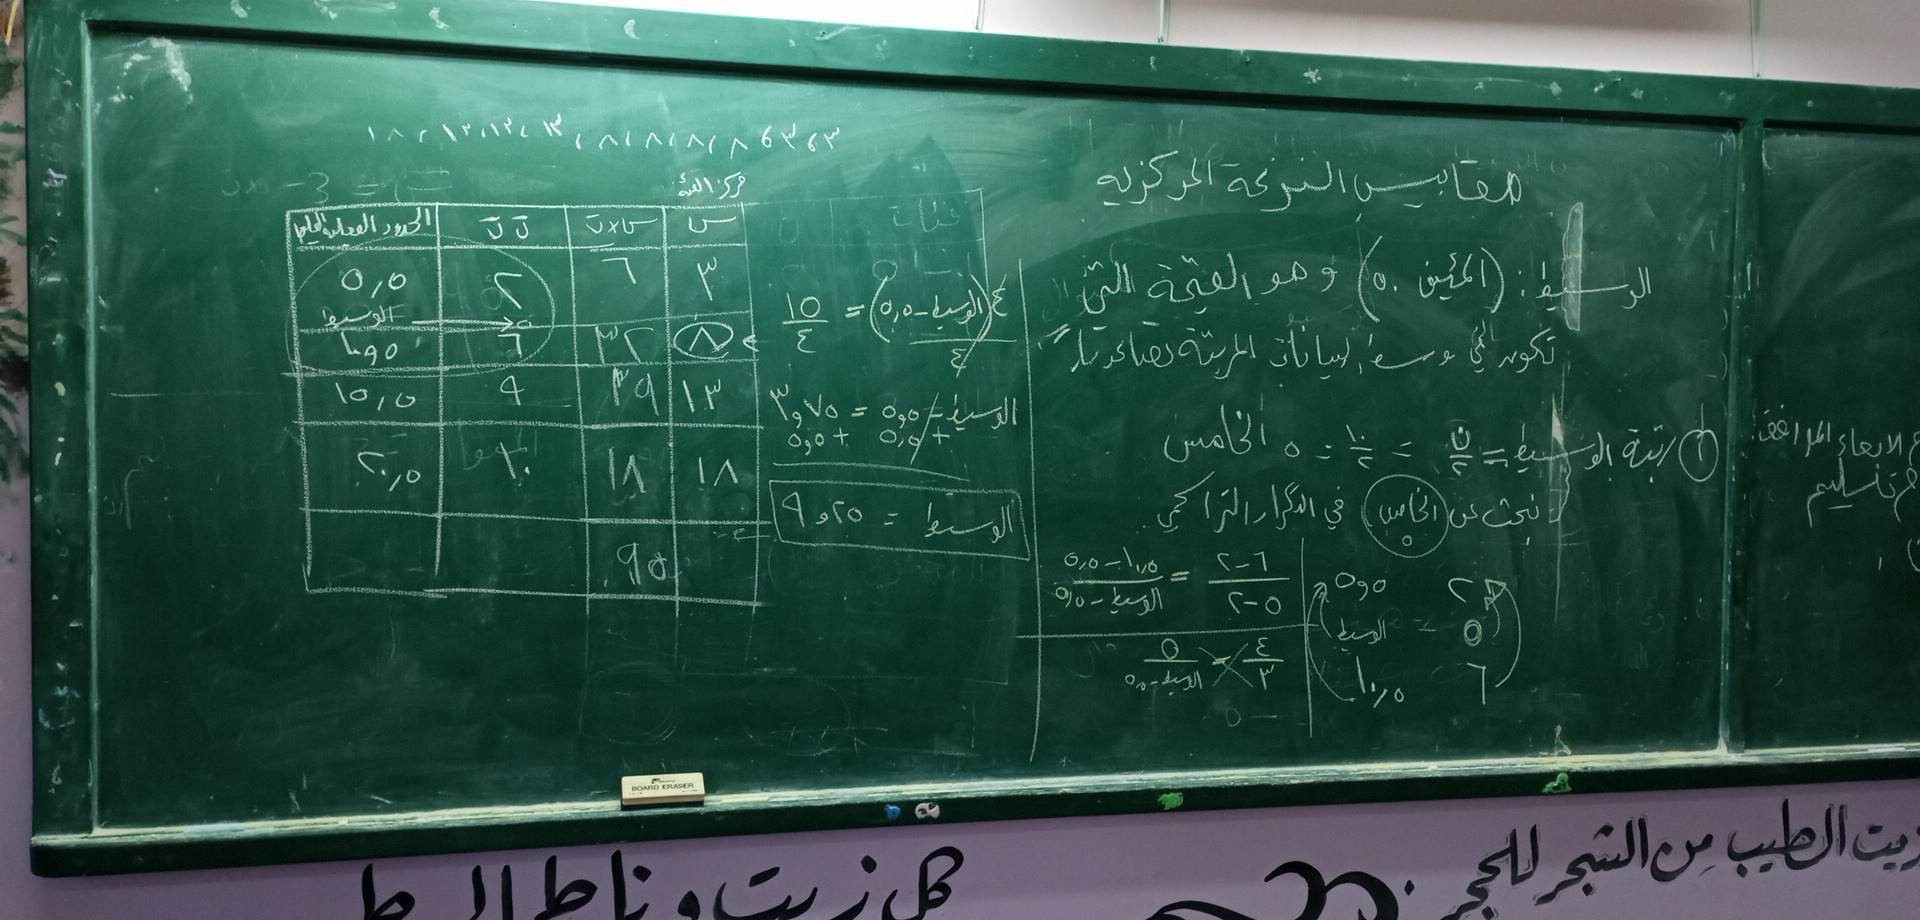 مقاييس النزعة المركزية
الوسيط: (المئين ٥٠) وهو القيمة التي
تكون في وسط البيانات المرتبة تصاعديا
١ رتبة الوسيط = ن/٢ = ١٠/٢ = ٥ الخامس
نبحث عن الخامس في التكرار التراكمي
٥
٢ ٥,٥
٥ = الوسيط
٦ ١٠,٥
٦-٢/٥-٢ = ١٠,٥-٥,٥/الوسيط-٥,٥
٤/٣ = ٥/الوسيط-٥,٥
٤(الوسيط-٥,٥)/٤ = ١٥/٤
الوسيط - ٥,٥ = ٣,٧٥
+ ٥,٥ + ٥,٥
الوسيط = ٩,٢٥
٣، ٣، ٨، ٨، ٨، ٨، ١٣، ١٣، ١٣، ١٨
مركز الفئة
فئات ت س س×ت ت ت الحدود الفعلية العليا
٣ ٦ ٢ ٥,٥
٥ الوسيط
٨ ٣٢ ٦ ١٠,٥
١٣ ٣٩ ٩ ١٥,٥
١٨ ١٨ ١٠ ٢٠,٥
٩٥
تسليم
BOARD ERASER
الطيب من الشجر للحجر
كل زيت و